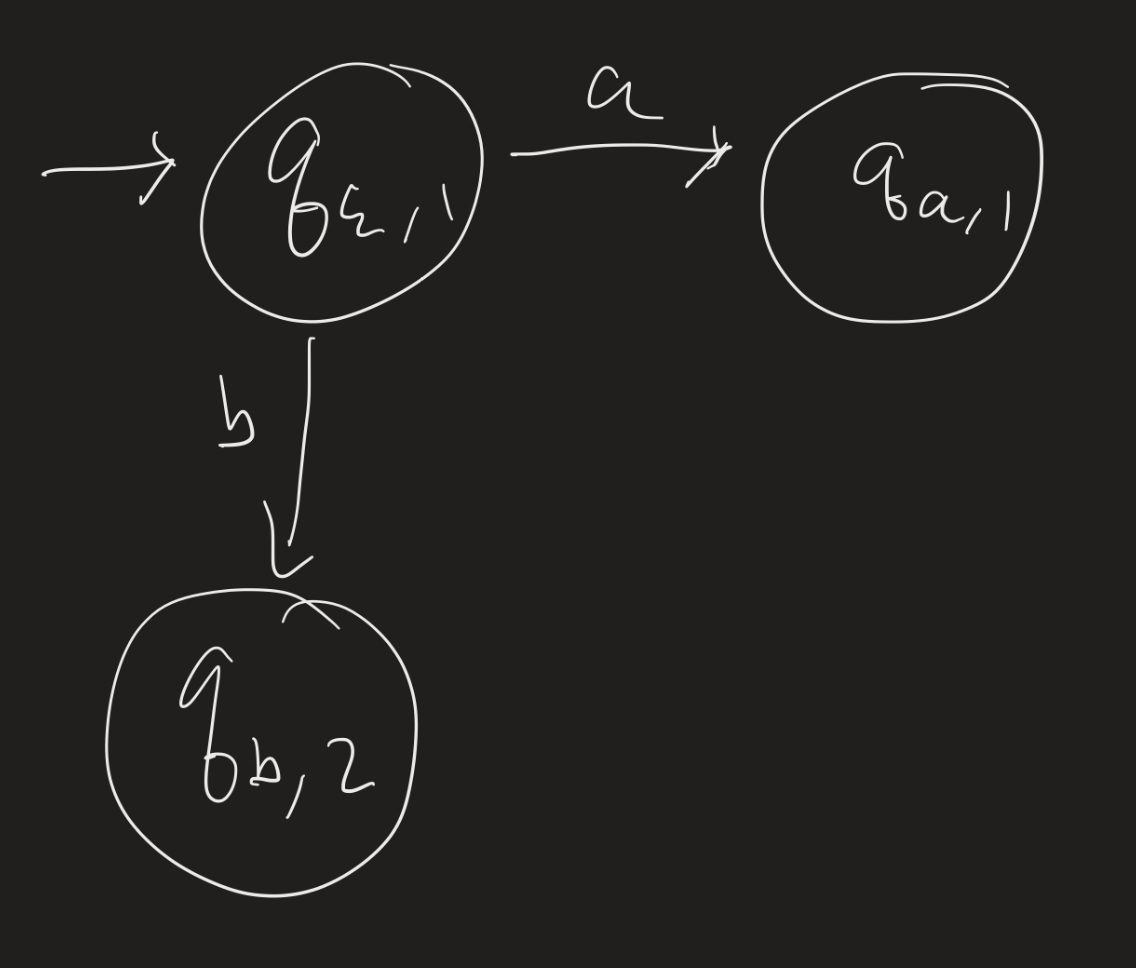 a
q_ε,1
q_a,1
b
q_b,2